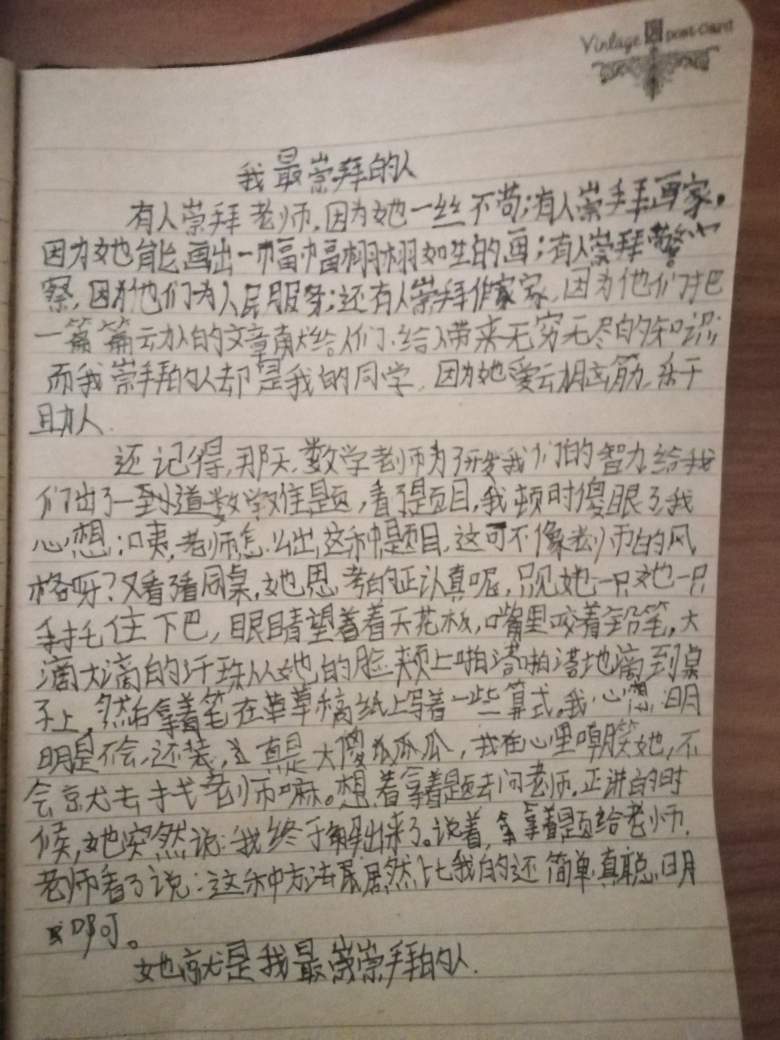 Vintage post card
我最崇拜的人
有人崇拜老师,因为她一丝不苟;有人崇拜画家,
因为她能画出一幅幅栩栩如生的画;有人崇拜警
察,因为他们为人民服务;还有人崇拜作家家,因为他们把
一篇篇动人的文章献给人们,给人带来无穷无尽的知识;
而我崇拜的人却是我的同学,因为她爱动脑筋,乐于
助人.
还记得,那天,数学老师为了开发我们的智力给我
们出了一到道数学难题,看了题目,我顿时傻眼了我
心想:咦,老师怎么出这种题目,这可不像老师的风
格呀?又看了看同桌,她思考的正认真呢,只见她一只她一只
手托住下巴,眼睛望着着天花板,嘴里咬着铅笔,大
滴大滴的汗珠从她的脸颊上啪嗒啪嗒地滴到桌
子上,然后拿着笔在草草稿纸上写着一些算式。我心想,明
明是不会,还装,真是大傻瓜瓜瓜,我在心里嘲笑她,不
会就去找老师嘛。想着拿着题去问老师,正讲的时
候,她突然说:我终于解出来了。说着,拿拿着题给老师,
老师看了说:这种方法居然比我的还简单,真聪明
啊。
她就是我最崇崇拜的人.